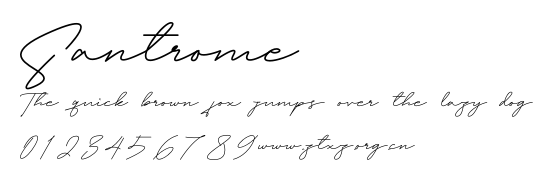 Santrome
The quick brown fox jumps over the lazy dog
0123456789www.ztxz.org.cn